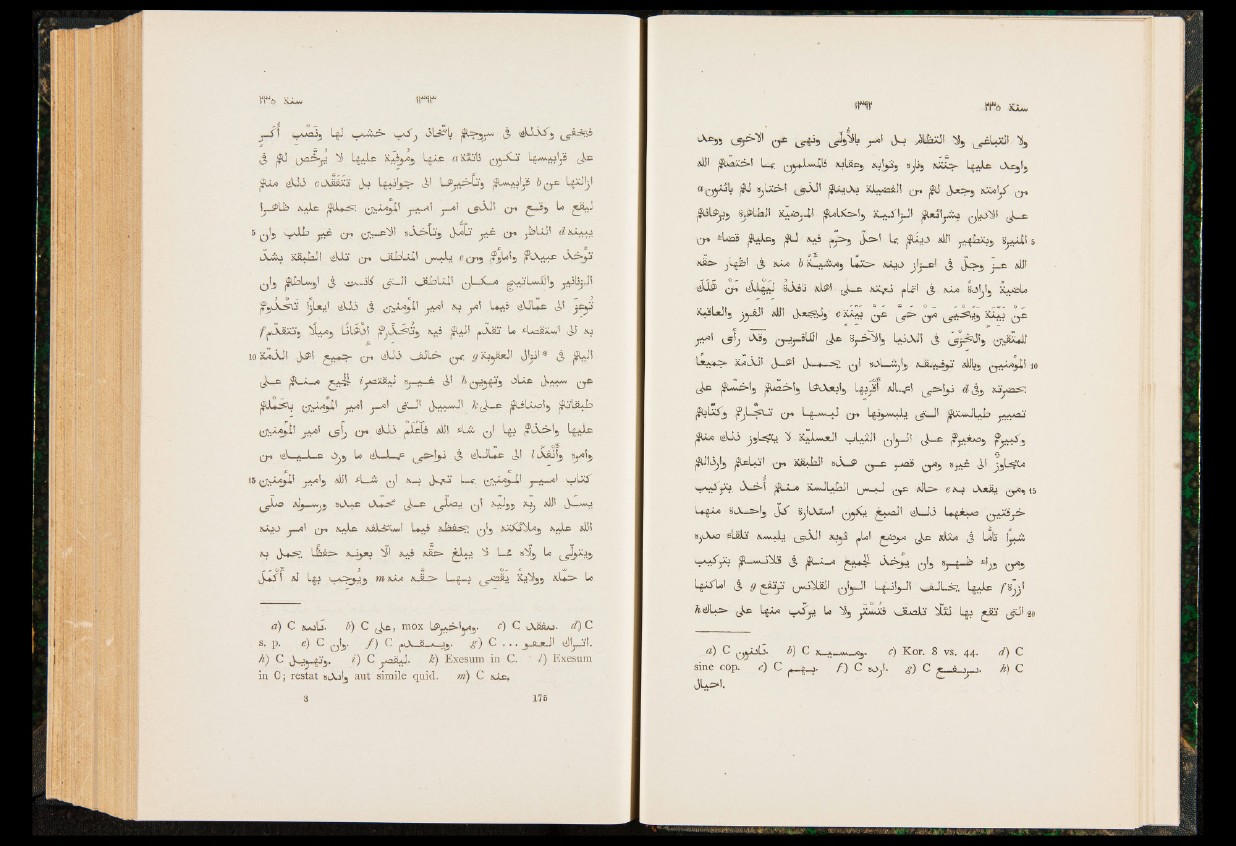 سنة ٢٣٥ ١٣٩٢
ولا التباغى ولا التظالم بل امر بالأُولَى ونهى عن الأخرى ووعد
واوعد عليها جنّته وناره وثوابه وعقابه فالمسلمون بما اختصّهم الله
من كرامته وجعل لهم من الفضيلة بدينهم الذى اختاره لهم بائنون a
على الاديان بشرائعهم الزاكية واحكامهم المرضيّة الطاهرة وبرهانهم
5 المنيرة وبتطهير الله دينهم بما احلّ وحرّم فيه لهم وعليهم قضاء من
الله عز وجلّ فى اعزاز دينه حتما ومشيّة b منه فى اظهار حقّه
ماضية وارادة منه فى اتمام نعمته على اهله نافذة لِيَهْلِكَ مَنْ هَلَكَ
عَنْ بَيِّنَة وَيَحْيَى مَنْ حَىَّ عَنْ بَيِّنَة c وليجعل الله الفوز والعاقبة
للمتّقين والخِزْى فى الدنيا والآخرة على الكافرين وقد رأى امير
10 المؤمنين وبالله توفيقه وارشاده ان يحمل اهل الذمّة جميعا
بحضرته وفى d نواحى اعماله اقربها وابعدها واخصّهم واخسّهم على
تصيير طيالستهم التى يلبسونها من لبسها من تجّارهم وكتّابهم
وكبيرهم وصغيرهم على الوان الثياب العسليّة لا يتجاوز ذلك منهم
متجاوز الى غيره ومن قصر عن هذه الطبقة من اتباعهم وارذالهم
15 ومن يقعد به e حاله عن لبس الطيالسة منهم أُخذ بتركيب
خرقتين صبغهما ذلك الصبغ يكون استدارة كلّ واحدة منهما
شبرا تامّا فى مثله على موضع امام ثوبه الذى يلبسه تلقاء صدره
ومن وراء ظهره وان يؤخذ الجميع منهم فى قلانسهم بتركيب
ازرّة f عليها يخالف الوانها الوان القلانس ترتفع g فى اماكنها
20 التى تقع بها لئلّا تلصق فتُستَر ولا ما يركّب منها على حباك h
a) C b) C c) Kor. 8 vs. 44. d) C
sine cop. e) C f) C ازره. g) C h) C
احبال.
سنة ٢٣٥ ١٣٩٣
فتخفى وكذلك فى سروجهم باتّخاذ ركب خشب لها ونَصْب أُكَر
على قرابيسها تكون ناتئة a عنها وموفية عليها لا يُرخّص لهم فى
ازالتها عن b قرابيسهم وتأخيرها الى جوانبها بل تُتَفَقَّد c ذلك منهم
ليقع ما وقع من الذى امر امير المؤمنين بحملهم عليه ظاهرا
5 يتبينه d الناظر من غير تأمّل وتأخذه الاعين من غير طلب وان
تؤخذ عبيدهم واماؤهم ومن e يلبس المناطق من تلك الطبقة بشدّ
الزنانير والكساتيج مكان المناطق التى كانت فى اوساطهم وان
توعز الى عمّالك فيما امر به امير المؤمنين فى ذلك ايعازا تحدوهم
به الى استقصاء ما تقدّم اليهم فيه وتحذّرهم ادهانا وميلا وتتقدّم f
10 اليهم * فى انزال العقوبة g بمن خالف ذلك من جميع اهل الذمّة
عن سبيل عناد وتهوين h الى غيره ليقتصر i الجميع منهم على
طبقاتهم واصنافهم على k السبيل التى امر امير المؤمنين بحملهم
عليها واخذهم بها ان شاء الله فاعلم ذلك من رأى امير المؤمنين
وامره وأَنفذ l الى عمّالك فى نواحى عملك ما ورد عليك من
15 كتاب امير المؤمنين بما تعمل به ان شاء الله وامير المؤمنين
يسئل الله ربّه ووليّه ان يصلّى على محمّد عبده ورسوله صلّى
الله عليه وملائكته وان يحفظه فيما استخلفه عليه من امر دينه
ويتولّى ما ولّاه مما لا يبلغ حقّه فيه الّا بعونه حفظًا يحمل به
ما حمّله وولاية يقضى بها حقّه منه m ويوجب بها له أكمل
a) C b) C على, mox c) C d) C
s. p. e) C وان. f) C g) C ...
h) C i) C ليقصر. k) Exesum in C. l) Exesum
in C; restat aut simile quid. m) C عنه.
3 175